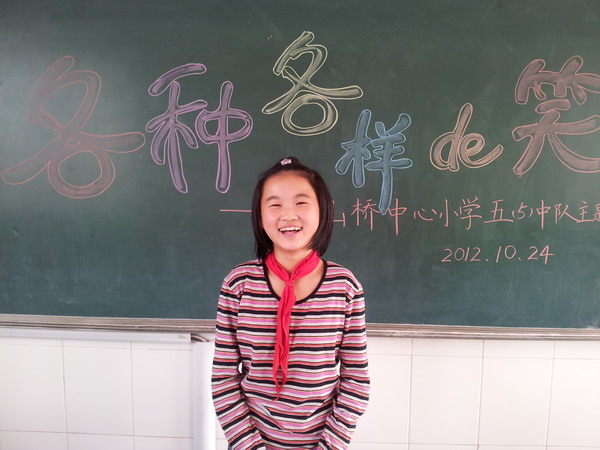 各种各样de笑
桥中心小学五(5)中队主
2012.10.24